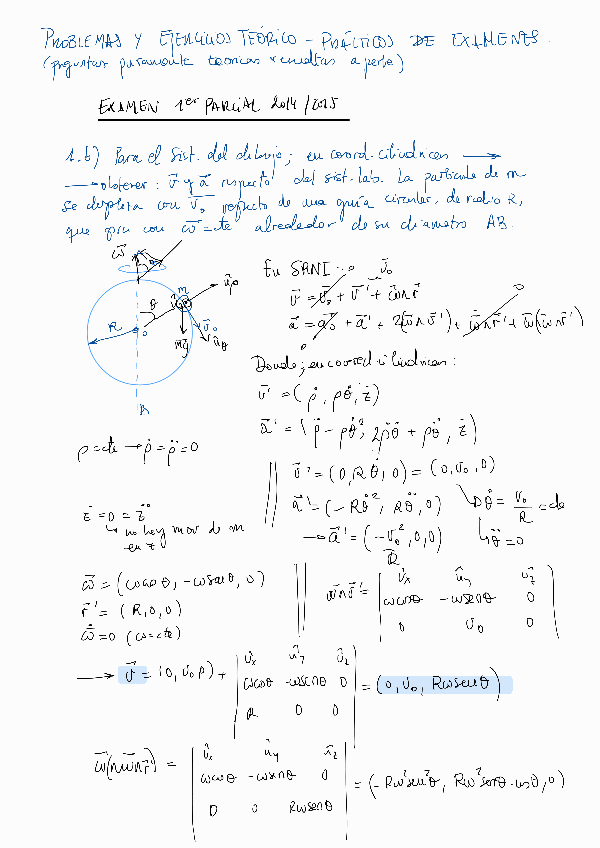 PROBLEMAS Y EJERCICIOS TEÓRICO - PRÁCTICOS DE EXAMENES.
(preguntas puramente teoricas resueltas aparte)
EXAMEN 1er PARCIAL 2014/2015
1.b) Para el sist. del dibujo; en coord. cilindricas →
→ obtener: v⃗ y a⃗ respecto del sist. lab. La particula de m
se desplaza con v⃗₀ respecto de una guía circular, de radio R,
que gira con ω⃗=cte alrededor de su diámetro AB.
ω⃗
m
û_ρ
θ
R
o
v⃗₀
û_θ
mg⃗
B
En SRNI:
o
v⃗₀
v⃗ = v⃗₀ + v⃗' + ω⃗∧r⃗'
o
a⃗ = a⃗₀ + a⃗' + 2(ω⃗∧v⃗') + ω̇⃗∧r⃗' + ω⃗(ω⃗∧r⃗')
o
Donde; en coord cilindricas:
v⃗' = (ρ̇, ρθ̇, ż)
a⃗' = (ρ̈ - ρθ̇², 2ρ̇θ̇ + ρθ̈, z̈)
ρ=cte → ρ̇=ρ̈=0
v⃗' = (0, Rθ̇, 0) = (0, v₀, 0)
a⃗' = (-Rθ̇², Rθ̈, 0)
θ̇ = v₀/R = cte
ż=0=z̈
no hay mov de m
en z
→ a⃗' = (-v₀²/R, 0, 0)
θ̈=0
ω⃗ = (ωcosθ, -ωsenθ, 0)
r⃗' = (R, 0, 0)
ω̇⃗=0 (ω=cte)
ω⃗∧v⃗' = | û_x û_y û_z |
ωcosθ -ωsenθ 0
0 v₀ 0
→ v⃗ = (0, v₀, 0) + | û_x û_y û_z |
ωcosθ -ωsenθ 0
R 0 0
= (0, v₀, Rωsenθ)
ω⃗(∧ω⃗∧r⃗') = | û_x û_y û_z |
ωcosθ -ωsenθ 0
0 0 Rωsenθ
= (-Rω²sen²θ, Rω²senθ·cosθ, 0)